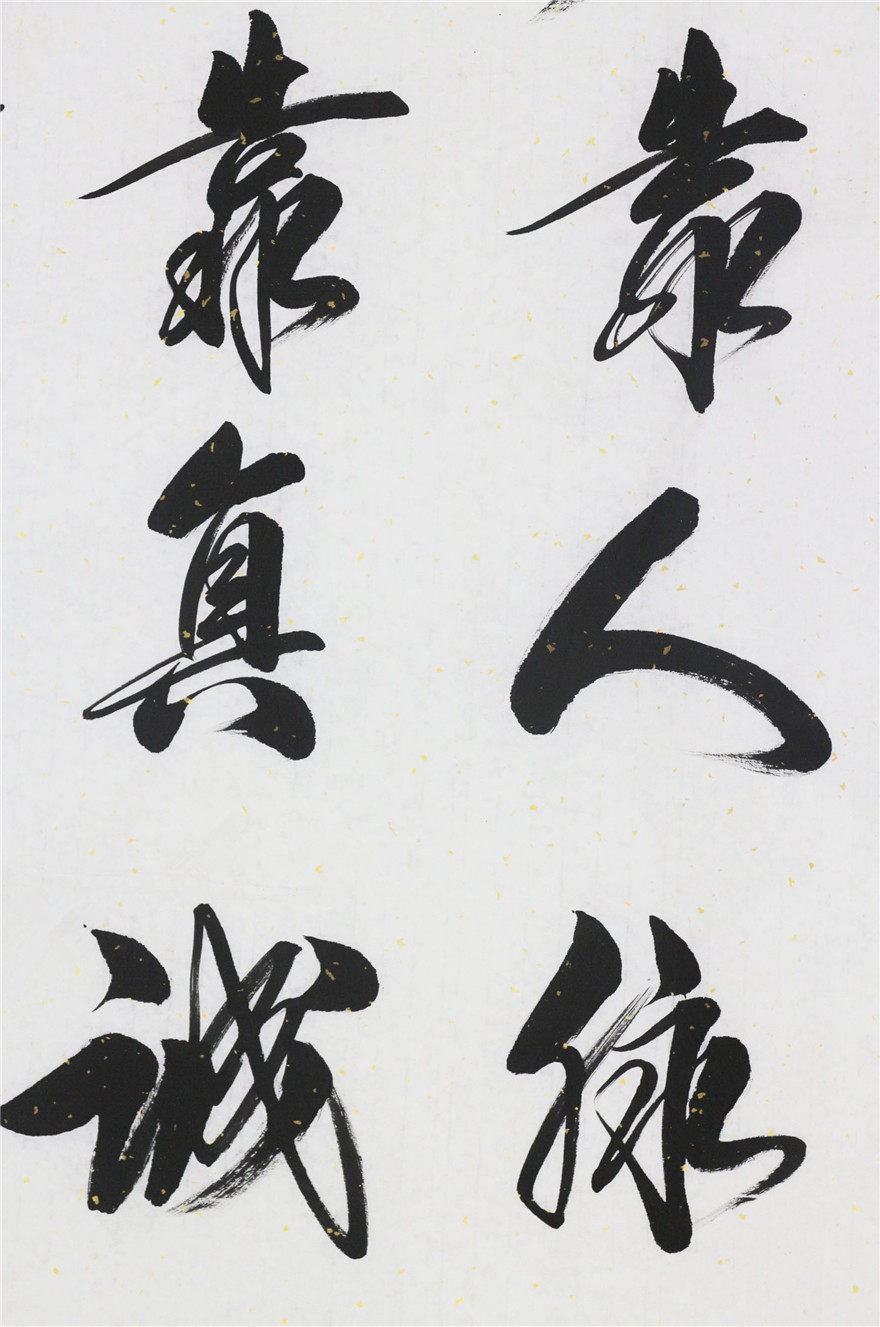 靠人脉
靠真诚